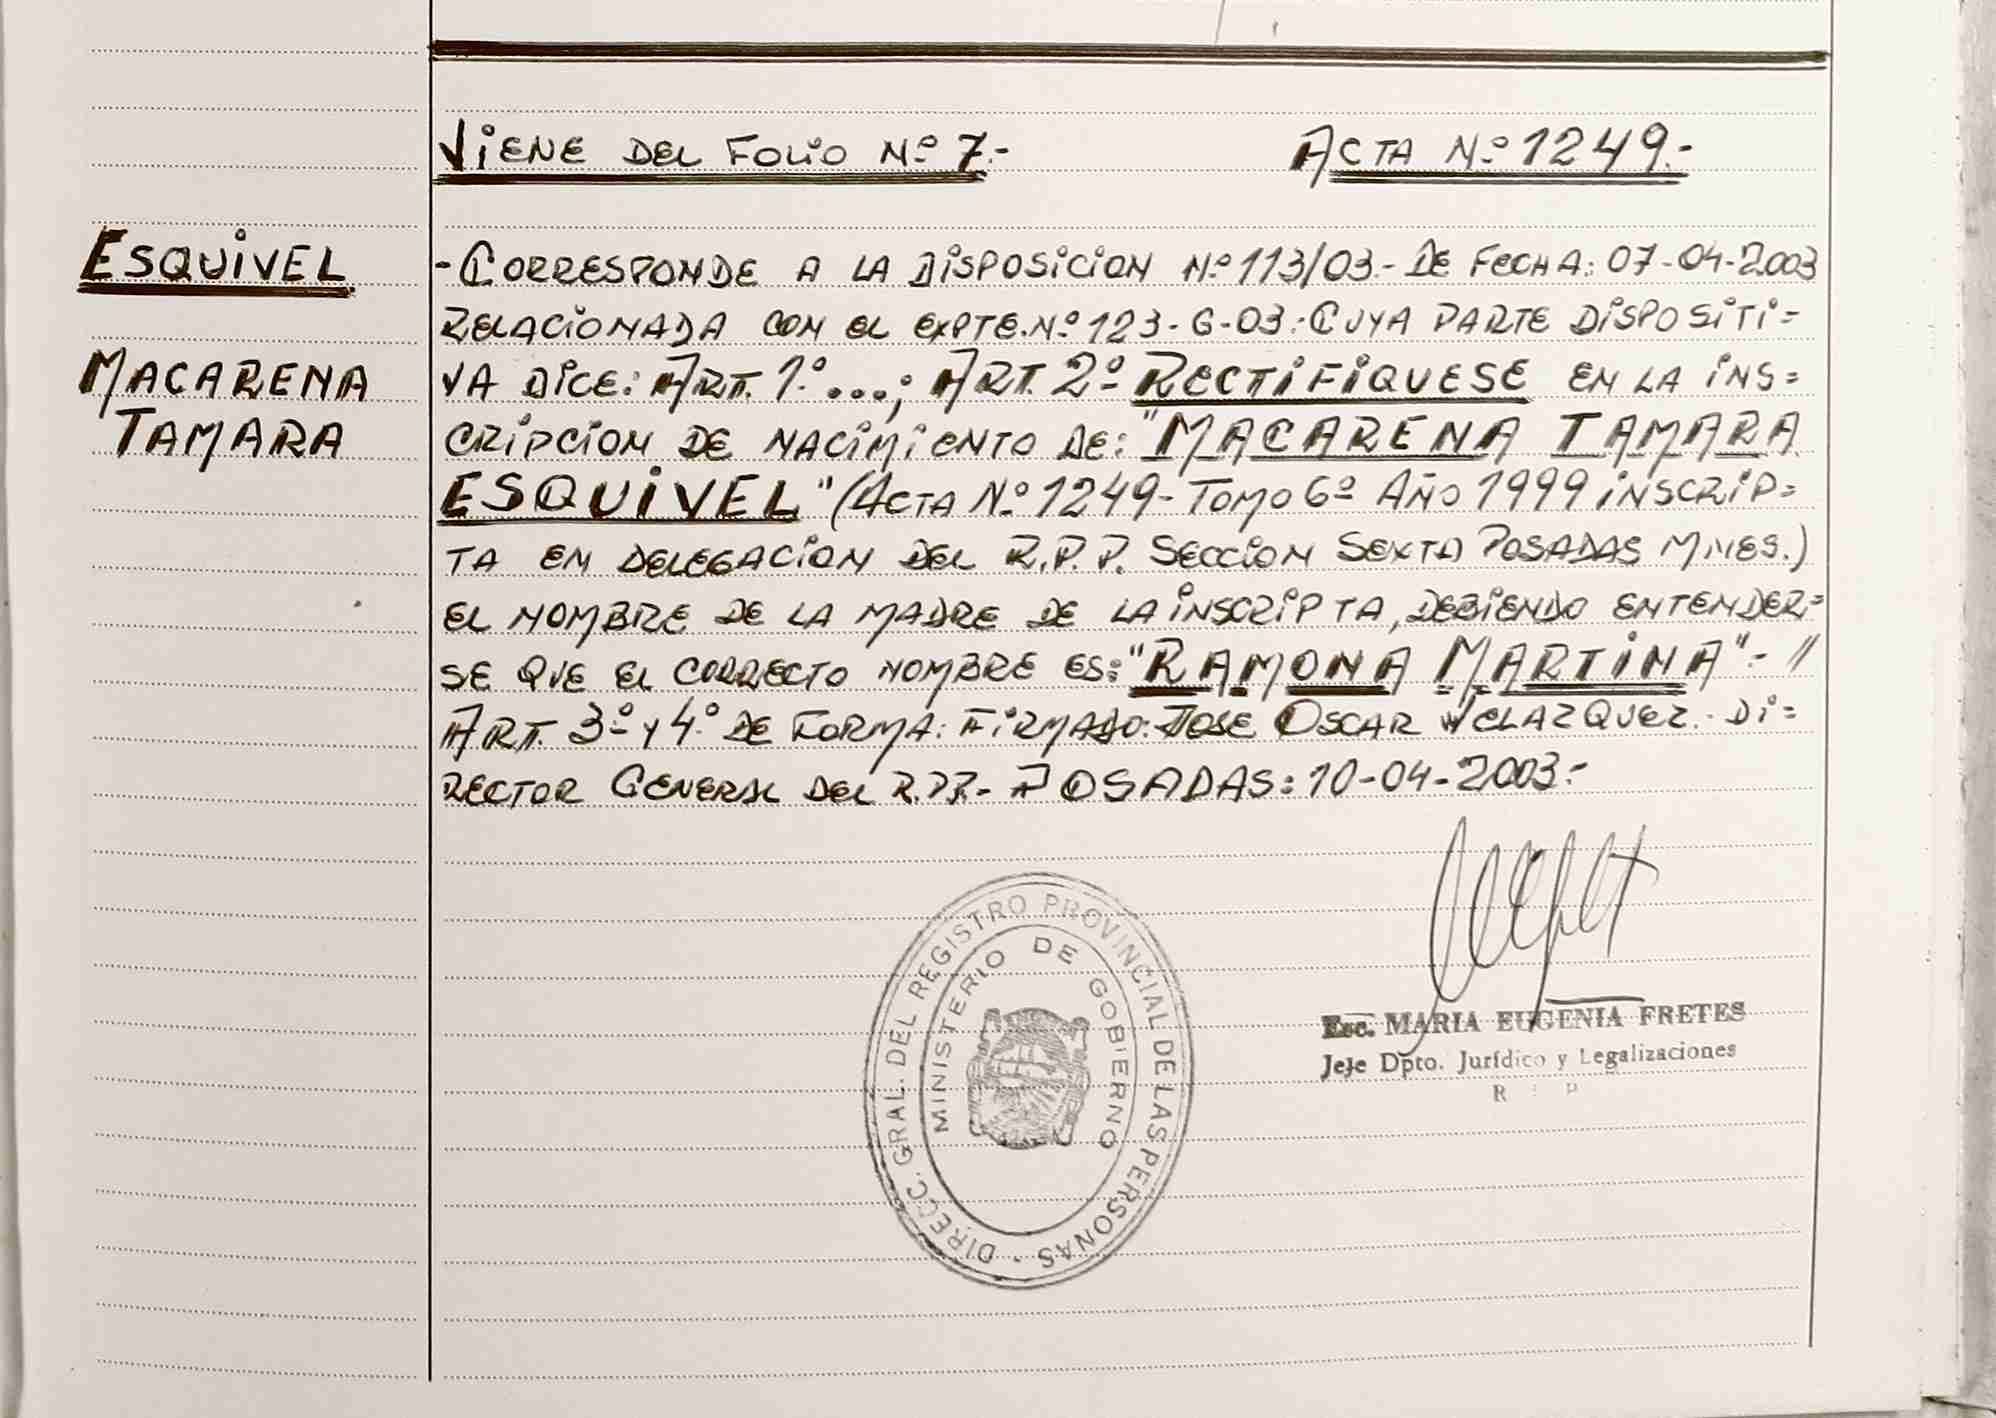 VIENE DEL FOLIO Nº 7.- ACTA Nº 1249.-
ESQUIVEL
MACARENA
TAMARA
-CORRESPONDE A LA DISPOSICION Nº 113/03.- DE FECHA: 07-04-2003
RELACIONADA CON EL EXPTE. Nº 123-G-03: CUYA PARTE DISPOSITI=
VA DICE: ART. 1º...; ART. 2º RECTIFIQUESE EN LA INS=
CRIPCION DE NACIMIENTO DE: "MACARENA TAMARA
ESQUIVEL" (ACTA Nº 1249- TOMO 6º AÑO 1999 INSCRIP=
TA EN DELEGACION DEL R.P.P. SECCION SEXTA POSADAS MNES.)
EL NOMBRE DE LA MADRE DE LA INSCRIPTA, DEBIENDO ENTENDER=
SE QUE EL CORRECTO NOMBRE ES: "RAMONA MARTINA".- //
ART. 3º Y 4º DE FORMA: FIRMADO: JOSE OSCAR VELAZQUEZ.- DI=
RECTOR GENERAL DEL R.P.P.- POSADAS: 10-04-2003.-
DIRECC. GRAL. DEL REGISTRO PROVINCIAL DE LAS PERSONAS
MINISTERIO DE GOBIERNO
Esc. MARIA EUGENIA FRETES
Jefe Dpto. Jurídico y Legalizaciones
R P